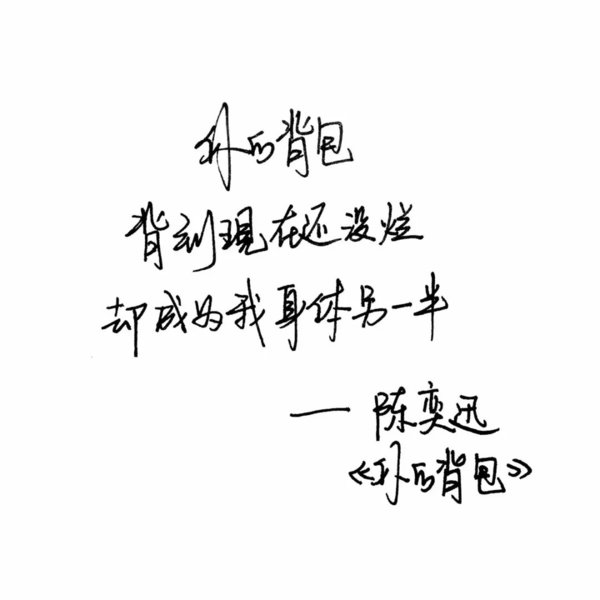 你的背包
背到现在还没烂
却成为我身体另一半
— 陈奕迅
《你的背包》